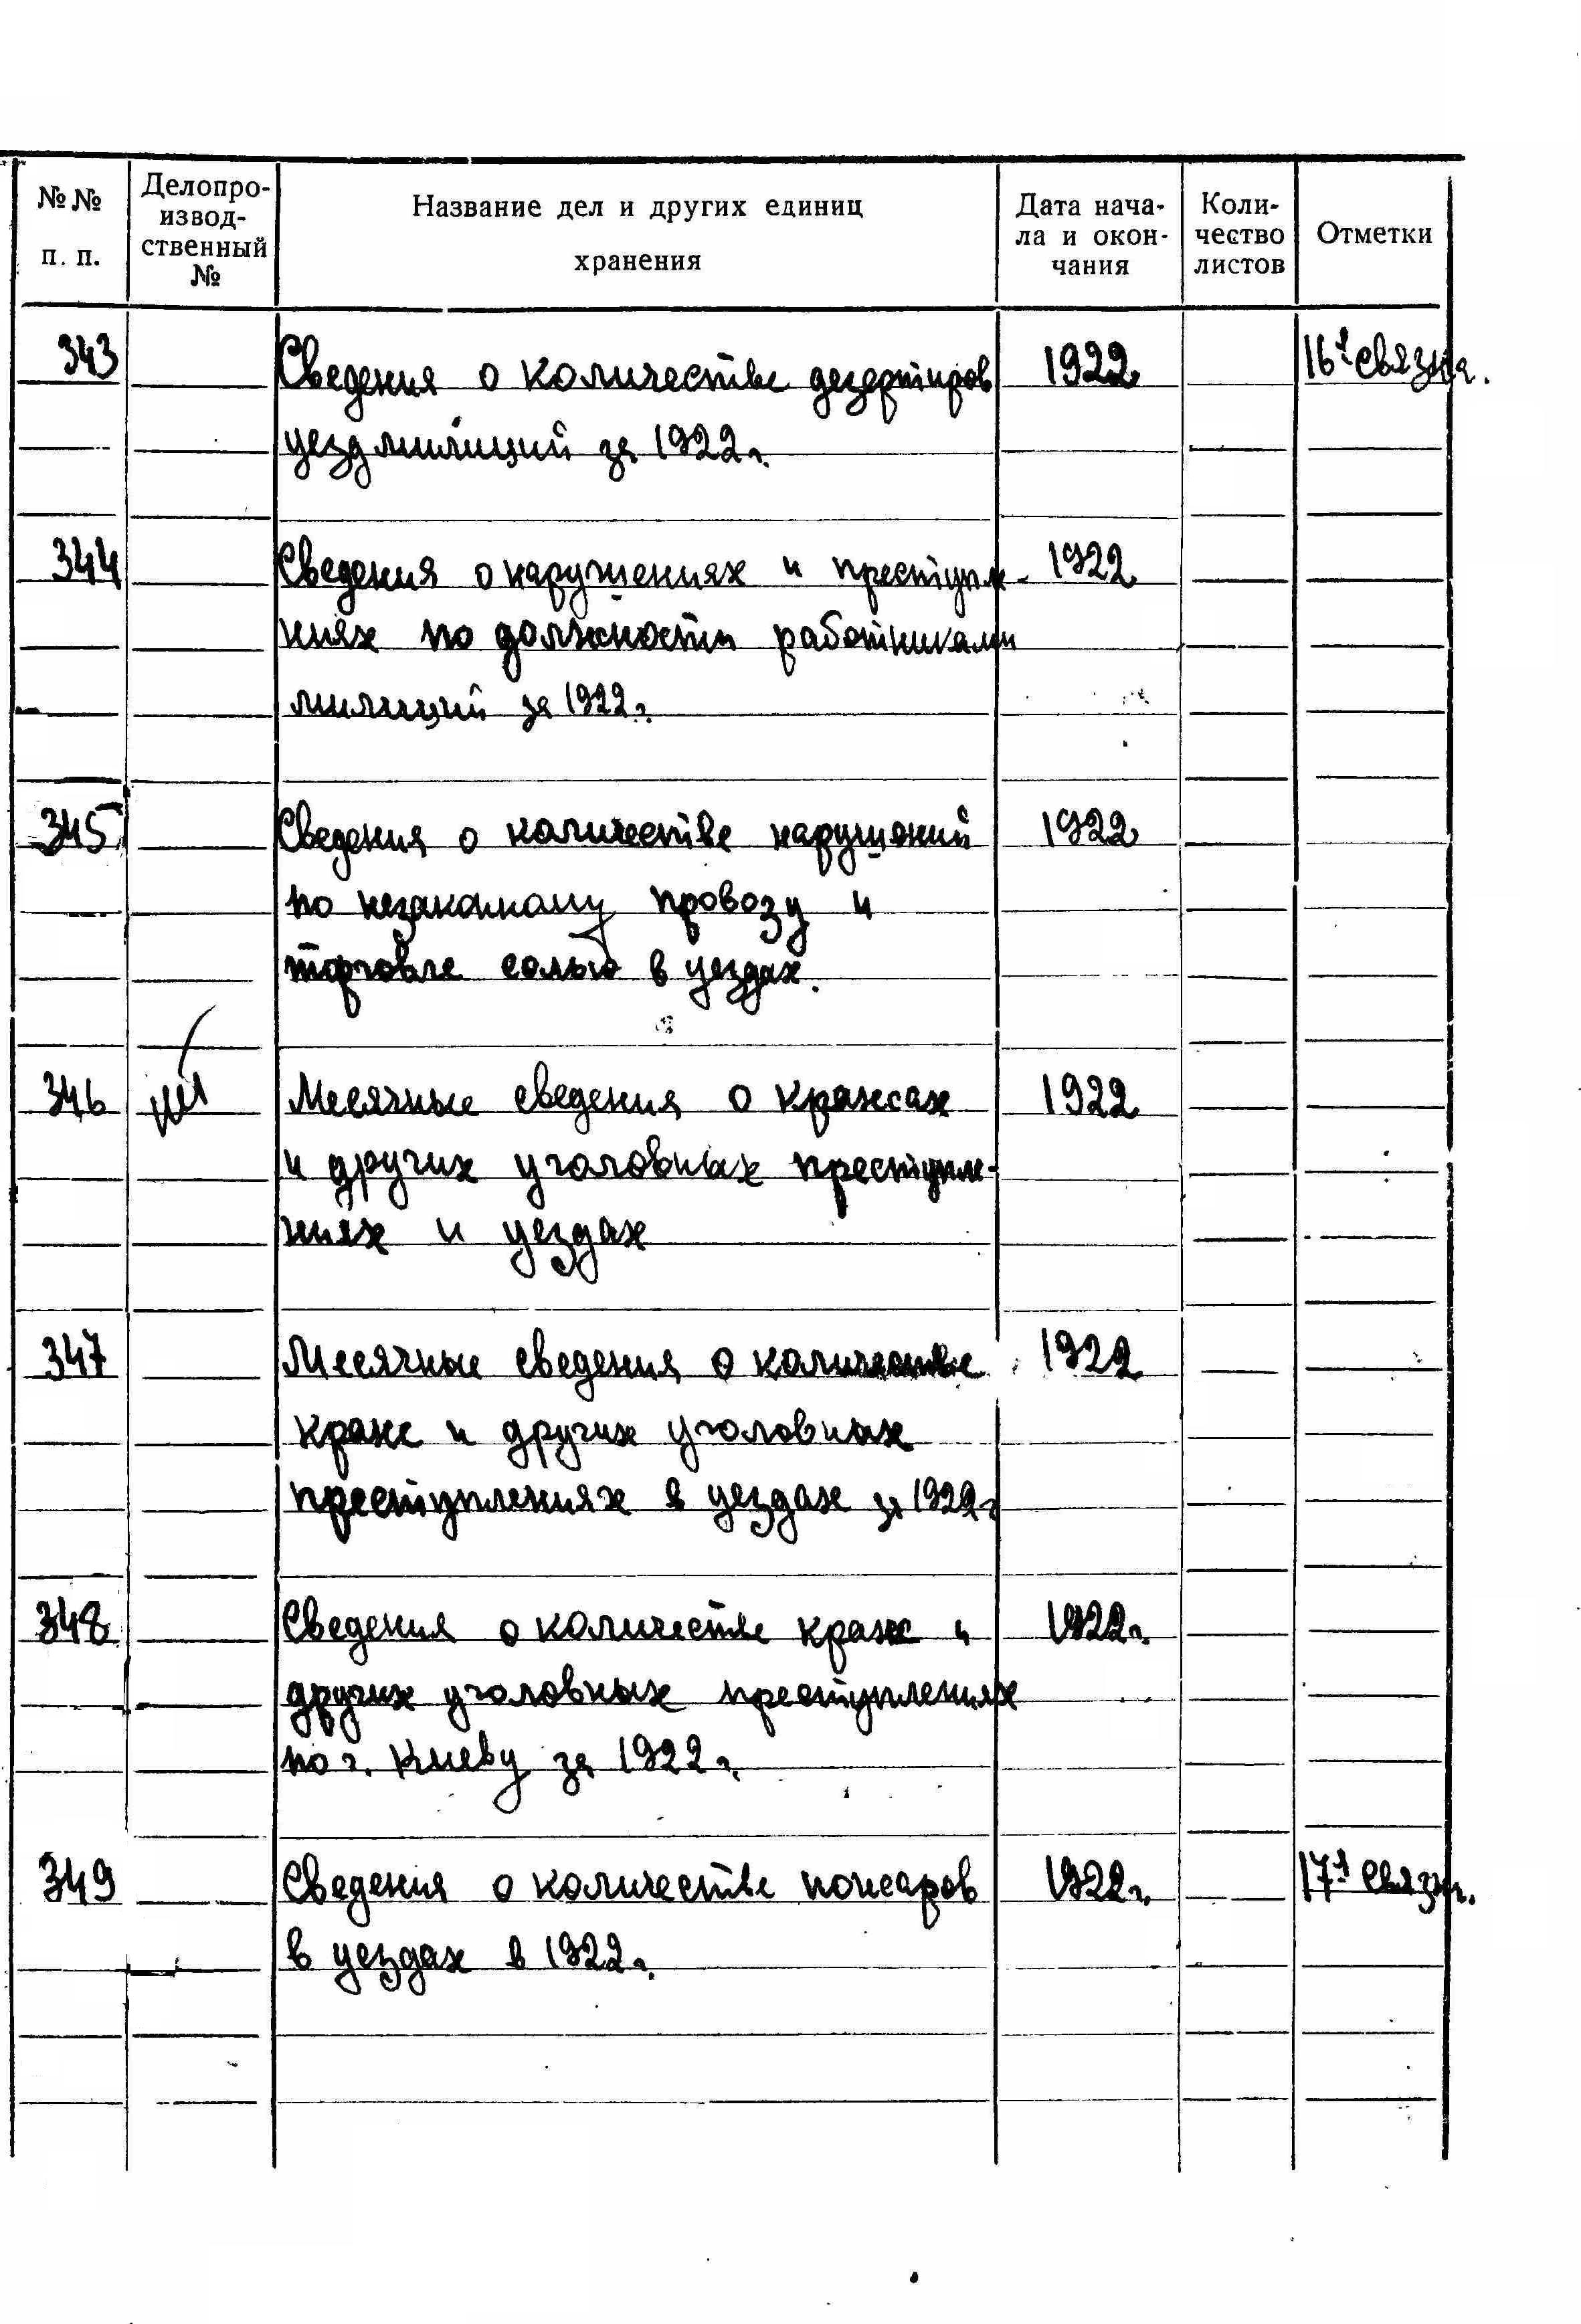 №№ п. п.
Делопро-
извод-
ственный
№
Название дел и других единиц
хранения
Дата нача-
ла и окон-
чания
Коли-
чество
листов
Отметки
343 Сведения о количестве дезертиров 1922 16я связка.
уездмилиций за 1922 г.
344 Сведения о нарушениях и преступле- 1922
ниях по должности работниками
милиции за 1922 г.
345 Сведения о количестве нарушений 1922
по незаконному провозу и
торговле солью в уездах.
346 Месячные сведения о кражах 1922
и других уголовных преступле-
ниях и уездах
347 Месячные сведения о количестве 1922
краж и других уголовных
преступлениях в уездах за 1922 г
348 Сведения о количестве краж и 1922 г.
других уголовных преступлениях
по г. Киеву за 1922 г.
349 Сведения о количестве пожаров 1922 г. 17я связка.
в уездах в 1922 г.